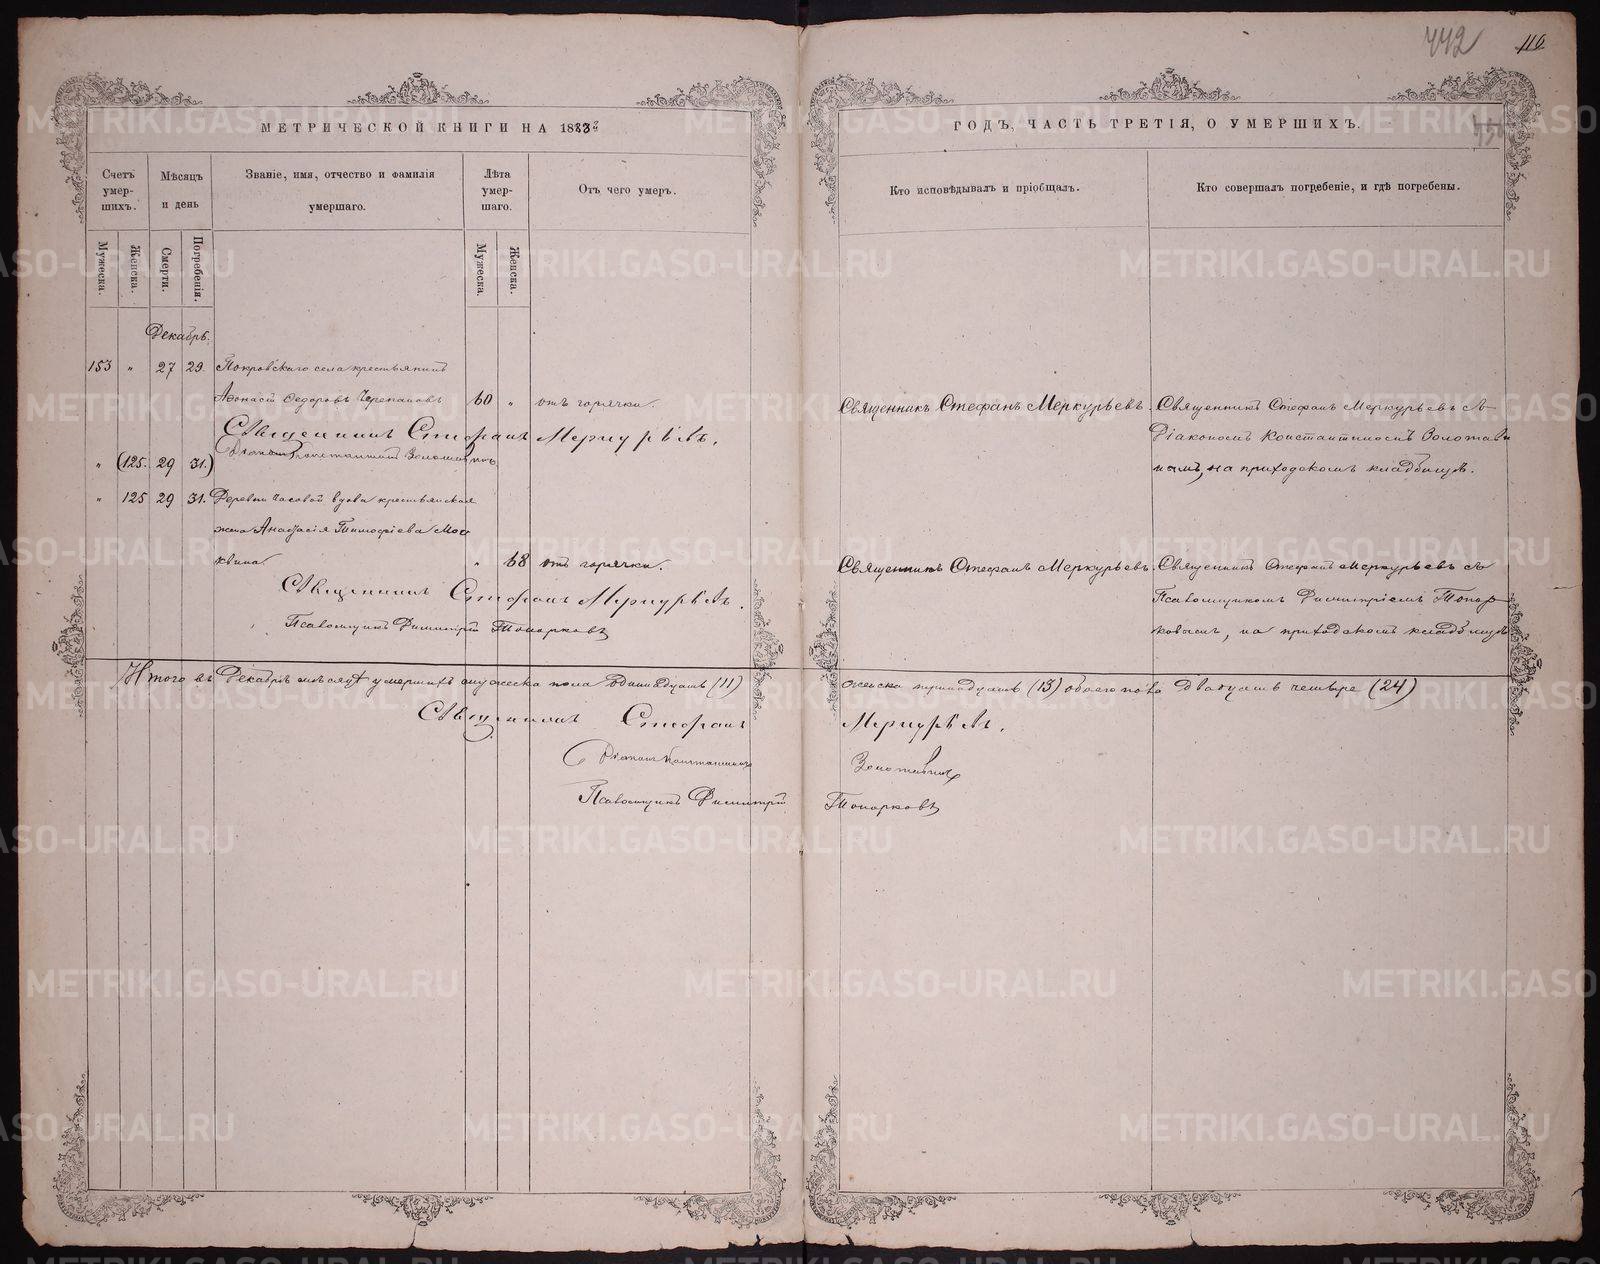 442
116
МЕТРИЧЕСКОЙ КНИГИ НА 1883
ГОДЪ, ЧАСТЬ ТРЕТІЯ, О УМЕРШИХЪ.
Счетъ умер-шихъ.
Мѣсяцъ и день
Званіе, имя, отчество и фамилія умершаго.
Лѣта умер-шаго.
Отъ чего умеръ.
Кто исповѣдывалъ и пріобщалъ.
Кто совершалъ погребеніе, и гдѣ погребены.
Мужеска.
Женска.
Смерти.
Погребенія.
Мужеска.
Женска.
Декабрь.
153 " 27 29. Покровскаго села крестьянинъ
Аѳонасій Ѳедоровъ Черепановъ 60 " отъ горячки.
Священникъ Стефанъ Меркурьевъ. Священникъ Стефанъ Меркурьевъ съ
Діакономъ Константиномъ Золотави
нымъ, на приходскомъ кладбищѣ.
Священникъ Стефанъ Меркурьевъ.
Діаконъ Константинъ Золотавинъ
" (125. 29 31.)
" 125 29 31. Деревни Часовой вдова крестьянская
жена Анастасія Тимофіева Мос
квина. " 68 отъ горячки.
Священникъ Стефанъ Меркурьевъ. Священникъ Стефанъ Меркурьевъ съ
Псаломщикомъ Димитріемъ Топор
ковымъ, на приходскомъ кладбищѣ
Священникъ Стефанъ Меркурьевъ.
Псаломщикъ Димитрій Топорковъ
Итого въ Декабрѣ мѣсяцѣ умершихъ мужеска пола одиннадцать (11) женска тринадцать (13) обоего пола двадцать четыре (24)
Священникъ Стефанъ Меркурьевъ.
Діаконъ Константинъ Золотавинъ
Псаломщикъ Димитрій Топорковъ
METRIKI.GASO-URAL.RU